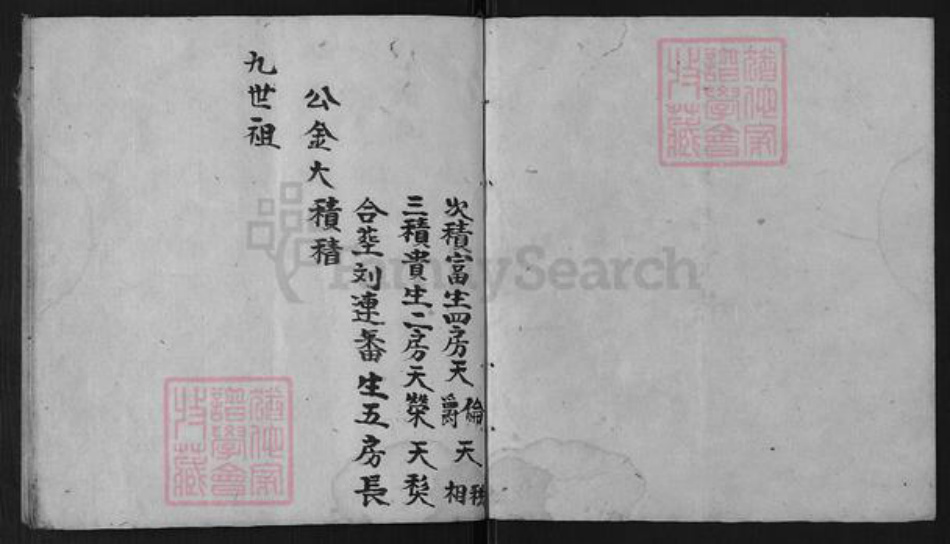 猶他家
譜學會
特藏
次積富生四房天倫爵天秩相
三積貴生二房天榮天
合塟刘連番生五房長
公金大積
九世祖
猶他家
譜學會
特藏
FamilySearch